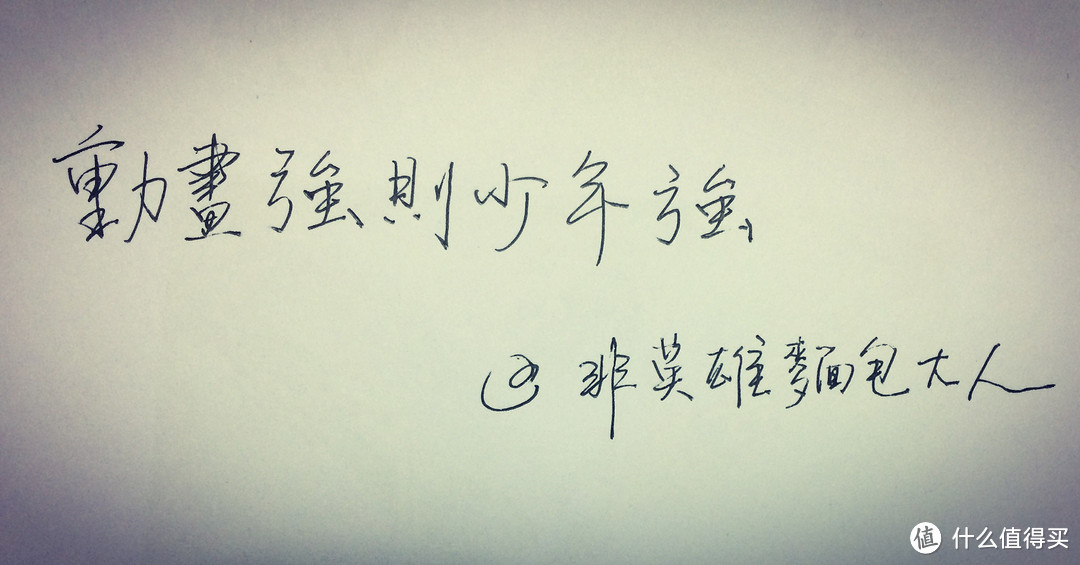 動畫強則少年強
@非英雄麵包大人
值 什么值得买